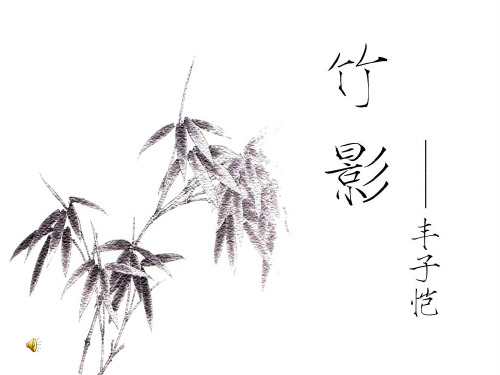 竹影
——丰子恺